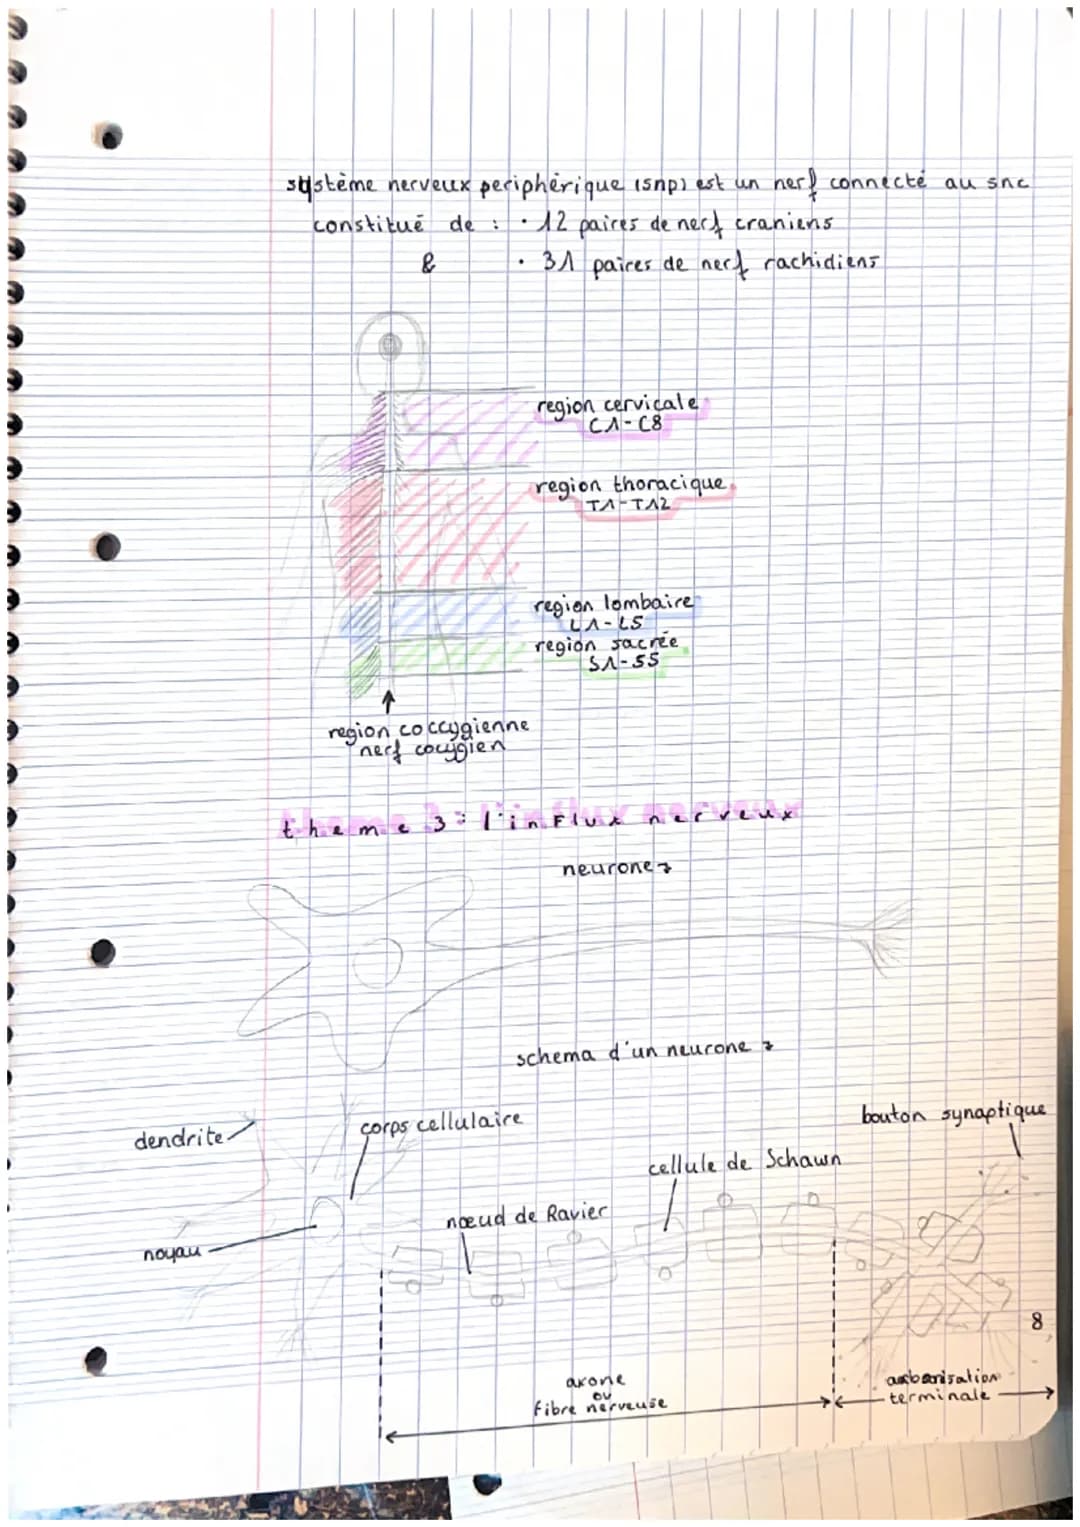 système nerveux periphérique (snp) est un nerf connecté au snc
constitué de : · 12 paires de nerf craniens
& · 31 paires de nerf rachidiens
region cervicale
C1-C8
region thoracique
T1-T12
region lombaire
L1-L5
region sacrée
S1-S5
region coccygienne
nerf cocygien
theme 3 : l'influx nerveux
neurone
schema d'un neurone
dendrite
corps cellulaire
bouton synaptique
cellule de Schawn
nœud de Ravier
noyau
8
axone
ou
fibre nerveuse
terminale